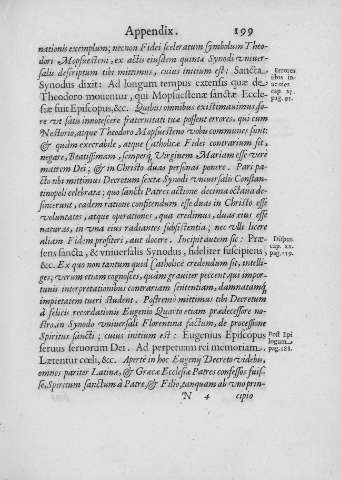 Appendix. 199
nationis exemplum; necnon Fidei sceleratum symbolum Theo-
dori Mopsuesteni, ex actis eiusdem quintæ Synodi vniuer-
salis descriptum tibi mittimus, cuius initium est: Sancta
Synodus dixit: Ad longum tempus extensis quæ de
Theodoro mouentur, qui Mopsuestenæ sanctæ Eccle-
siæ fuit Episcopus, &c. Quibus omnibus existimauimus fo-
re vt satis innotescere fraternitati tuæ possent errores, qui cum
Nestorio, atque Theodoro Mopsuesteno vobis communes sunt:
& quàm execrabile, atque Catholicæ Fidei contrarium sit,
negare, Beatissimam, semperq́ Virginem Mariam esse verè
matrem Dei; & in Christo duas personas ponere. Pari pa-
cto tibi mittimus Decretum sextæ Synodi vniuersalis Constan-
tinopoli celebratæ; quo sancti Patres actione decima octaua de-
finierunt, eadem ratione confitendum esse duas in Christo esse
voluntates, atque operationes, qua credimus, duas eius esse
naturas, in vna eius radiantes subsistentia; nec vlli licere
aliam Fidem profiteri, aut docere. Incipit autem sic: Præ-
sens sancta, & vniuersalis Synodus, fideliter suscipiens,
&c. Ex quo non tantùm quid Catholicè credendum sit, intelli-
ges; verùm etiam cognosces, quàm grauiter peccent, qui impor-
tunis interpretationibus contrariam sententiam, damnatamq́
impietatem tueri student. Postremò mittimus tibi Decretum
à felicis recordationis Eugenio Quarto etiam prædecessore no-
stro, in Synodo vniuersali Florentina factum, de processione
Spiritus sancti; cuius initium est: Eugenius Episcopus
seruus seruorum Dei. Ad perpetuam rei memoriam.
Lætentur cœli, &c. Apertè in hoc Eugenij Decreto videbis,
omnes pariter Latinæ, & Græcæ Ecclesiæ Patres confessos fuis-
se, Spiritum sanctum à Patre, & Filio, tanquam ab vno prin-
N 4 cipio
Errores
pag. 91.
Disput.
cap. xx.
pag. 119.
Post Epi
logum
pag. 188.